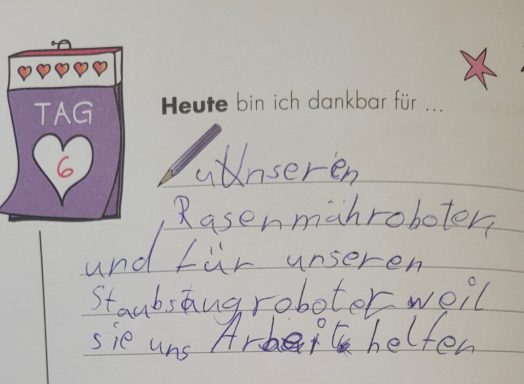 TAG
6
Heute bin ich dankbar für ...
Unseren
Rasenmähroboter,
und für unseren
Staubsaugroboter weil
sie uns Arbeit helfen